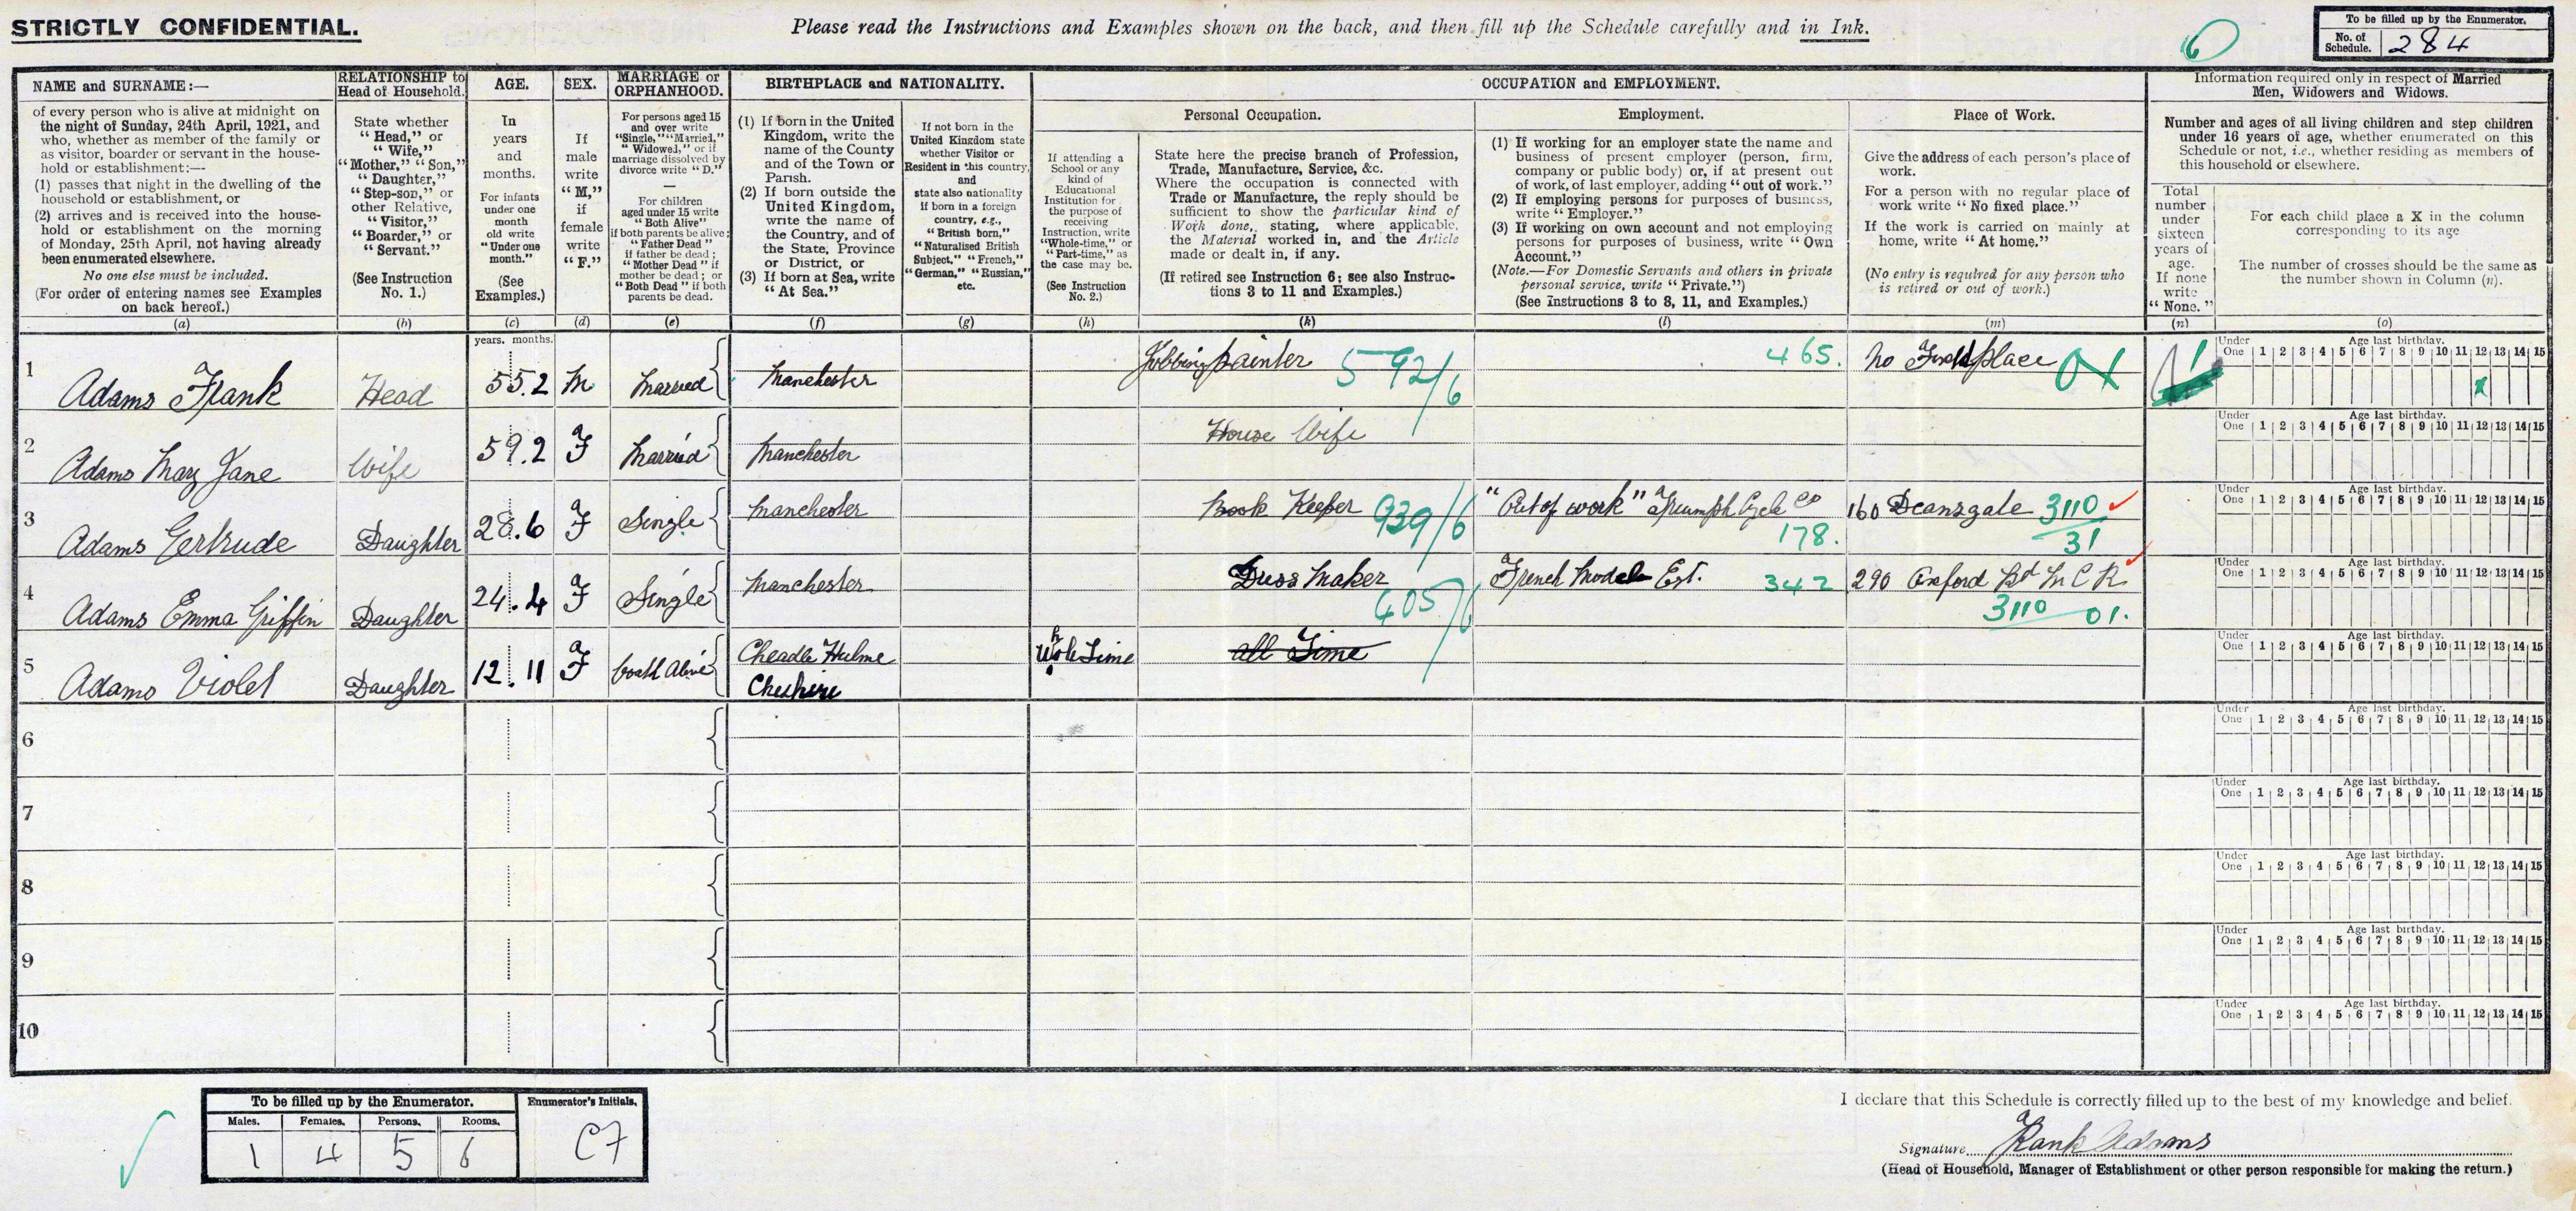 STRICTLY CONFIDENTIAL.
Please read the Instructions and Examples shown on the back, and then fill up the Schedule carefully and in Ink.
6
To be filled up by the Enumerator.
No. of Schedule. 284
NAME and SURNAME :—
of every person who is alive at midnight on
the night of Sunday, 24th April, 1921, and
who, whether as member of the family or
as visitor, boarder or servant in the house-
hold or establishment:—
(1) passes that night in the dwelling of the
household or establishment, or
(2) arrives and is received into the house-
hold or establishment on the morning
of Monday, 25th April, not having already
been enumerated elsewhere.
No one else must be included.
(For order of entering names see Examples
on back hereof.)
(a)
RELATIONSHIP to
Head of Household.
State whether
"Head," or
"Wife,"
"Mother," "Son,"
"Daughter,"
"Step-son," or
other Relative,
"Visitor,"
"Boarder," or
"Servant."
(See Instruction
No. 1.)
(b)
AGE.
In
years
and
months.
For infants
under one
month
old write
"Under one
month."
(See
Examples.)
(c)
SEX.
If
male
write
"M,"
if
female
write
"F."
(d)
MARRIAGE or
ORPHANHOOD.
For persons aged 15
and over write
"Single," "Married,"
"Widowed," or if
marriage dissolved by
divorce write "D."
—
For children
aged under 15 write
"Both Alive"
if both parents be alive;
"Father Dead"
if father be dead;
"Mother Dead" if
mother be dead; or
"Both Dead" if both
parents be dead.
(e)
BIRTHPLACE and NATIONALITY.
(1) If born in the United
Kingdom, write the
name of the County
and of the Town or
Parish.
(2) If born outside the
United Kingdom,
write the name of
the Country, and of
the State, Province
or District, or
(3) If born at Sea, write
"At Sea."
(f)
If not born in the
United Kingdom state
whether Visitor or
Resident in this country,
and
state also nationality
if born in a foreign
country, e.g.,
"British born,"
"Naturalised British
Subject," "French,"
"German," "Russian,"
etc.
(g)
OCCUPATION and EMPLOYMENT.
Personal Occupation.
If attending a
School or any
kind of
Educational
Institution for
the purpose of
receiving
Instruction, write
"Whole-time," or
"Part-time," as
the case may be.
(See Instruction
No. 2.)
(h)
State here the precise branch of Profession,
Trade, Manufacture, Service, &c.
Where the occupation is connected with
Trade or Manufacture, the reply should be
sufficient to show the particular kind of
Work done, stating, where applicable,
the Material worked in, and the Article
made or dealt in, if any.
(If retired see Instruction 6; see also Instruc-
tions 3 to 11 and Examples.)
(k)
Employment.
(1) If working for an employer state the name and
business of present employer (person, firm,
company or public body) or, if at present out
of work, of last employer, adding "out of work."
(2) If employing persons for purposes of business,
write "Employer."
(3) If working on own account and not employing
persons for purposes of business, write "Own
Account."
(Note.—For Domestic Servants and others in private
personal service, write "Private.")
(See Instructions 3 to 8, 11, and Examples.)
(l)
Place of Work.
Give the address of each person's place of
work.
For a person with no regular place of
work write "No fixed place."
If the work is carried on mainly at
home, write "At home."
(No entry is required for any person who
is retired or out of work.)
(m)
Information required only in respect of Married
Men, Widowers and Widows.
Number and ages of all living children and step children
under 16 years of age, whether enumerated on this
Schedule or not, i.e., whether residing as members of
this household or elsewhere.
Total
number
under
sixteen
years of
age.
If none
write
"None."
(n)
For each child place a X in the column
corresponding to its age
The number of crosses should be the same as
the number shown in Column (n).
(o)
years. months.
1 Adams Frank Head 55.2 M Married Manchester Jobbing painter 592/6 465. No Fixed place OX 1
Under One 1 2 3 4 5 6 7 8 9 10 11 12 13 14 15 Age last birthday.
x
2 Adams Mary Jane Wife 59.2 F Married Manchester House Wife
Under One 1 2 3 4 5 6 7 8 9 10 11 12 13 14 15 Age last birthday.
3 Adams Gertrude Daughter 28.6 F Single Manchester Book Keeper 939/6 "Out of work" Triumph Cycle Co 178. 160 Deansgate 3110 31
Under One 1 2 3 4 5 6 7 8 9 10 11 12 13 14 15 Age last birthday.
4 Adams Emma Griffin Daughter 24.4 F Single Manchester Dress Maker 405/6 French Model Est. 342 290 Oxford Rd M C R 3110 01.
Under One 1 2 3 4 5 6 7 8 9 10 11 12 13 14 15 Age last birthday.
5 Adams Violet Daughter 12.11 F both Alive Cheadle Hulme Cheshire Whole Time all Time
Under One 1 2 3 4 5 6 7 8 9 10 11 12 13 14 15 Age last birthday.
6
Under One 1 2 3 4 5 6 7 8 9 10 11 12 13 14 15 Age last birthday.
7
Under One 1 2 3 4 5 6 7 8 9 10 11 12 13 14 15 Age last birthday.
8
Under One 1 2 3 4 5 6 7 8 9 10 11 12 13 14 15 Age last birthday.
9
Under One 1 2 3 4 5 6 7 8 9 10 11 12 13 14 15 Age last birthday.
10
Under One 1 2 3 4 5 6 7 8 9 10 11 12 13 14 15 Age last birthday.
To be filled up by the Enumerator.
Males. Females. Persons. Rooms.
1 4 5 6
Enumerator's Initials.
CF
I declare that this Schedule is correctly filled up to the best of my knowledge and belief.
Signature Frank Adams
(Head of Household, Manager of Establishment or other person responsible for making the return.)